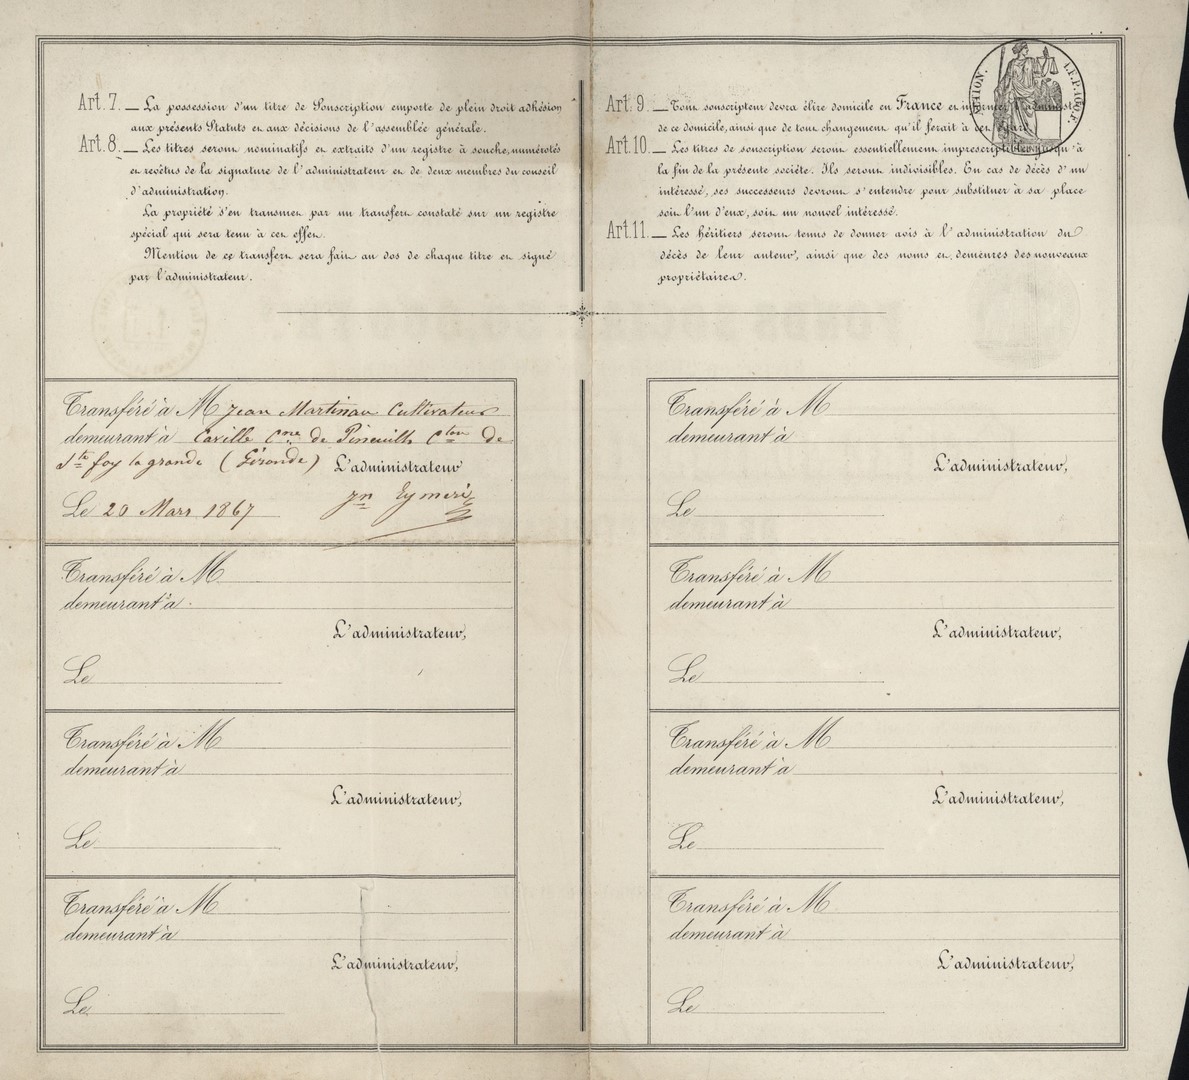 Art. 7. — La possession d'un titre de Souscription emporte de plein droit adhésion
aux présents Statuts et aux décisions de l'assemblée générale.
Art. 8. — Les titres seront nominatifs et extraits d'un registre à souche, numérotés
et revêtus de la signature de l'administrateur et de deux membres du conseil
d'administration.
La propriété s'en transmet par un transfert constaté sur un registre
spécial qui sera tenu à cet effet.
Mention de ce transfert sera fait au dos de chaque titre et signé
par l'administrateur.
ACTION.
Art 9. — Tout souscripteur devra élire domicile en France et informer l'administ
de ce domicile, ainsi que de tout changement qu'il ferait à cet égard.
Art. 10. — Les titres de souscription seront essentiellement imprescriptibles jusqu'à
la fin de la présente société. Ils seront indivisibles. En cas de décès d'un
intéressé, ses successeurs devront s'entendre pour substituer à sa place
soit l'un d'eux, soit un nouvel intéressé.
Art. 11. — Les héritiers seront tenus de donner avis à l'administration du
décès de leur auteur, ainsi que des noms et demeures des nouveaux
propriétaires.
Transféré à M Jean Martineau Cultivateur
demeurant à Caville Cne de Pineuilh Cton de
Ste foy la grande (Gironde) L'administrateur
Le 20 Mars 1867 Jn Eymeri
Transféré à M
demeurant à
L'administrateur,
Le
Transféré à M
demeurant à
L'administrateur,
Le
Transféré à M
demeurant à
L'administrateur,
Le
Transféré à M
demeurant à
L'administrateur,
Le
Transféré à M
demeurant à
L'administrateur,
Le
Transféré à M
demeurant à
L'administrateur,
Le
Transféré à M
demeurant à
L'administrateur,
Le